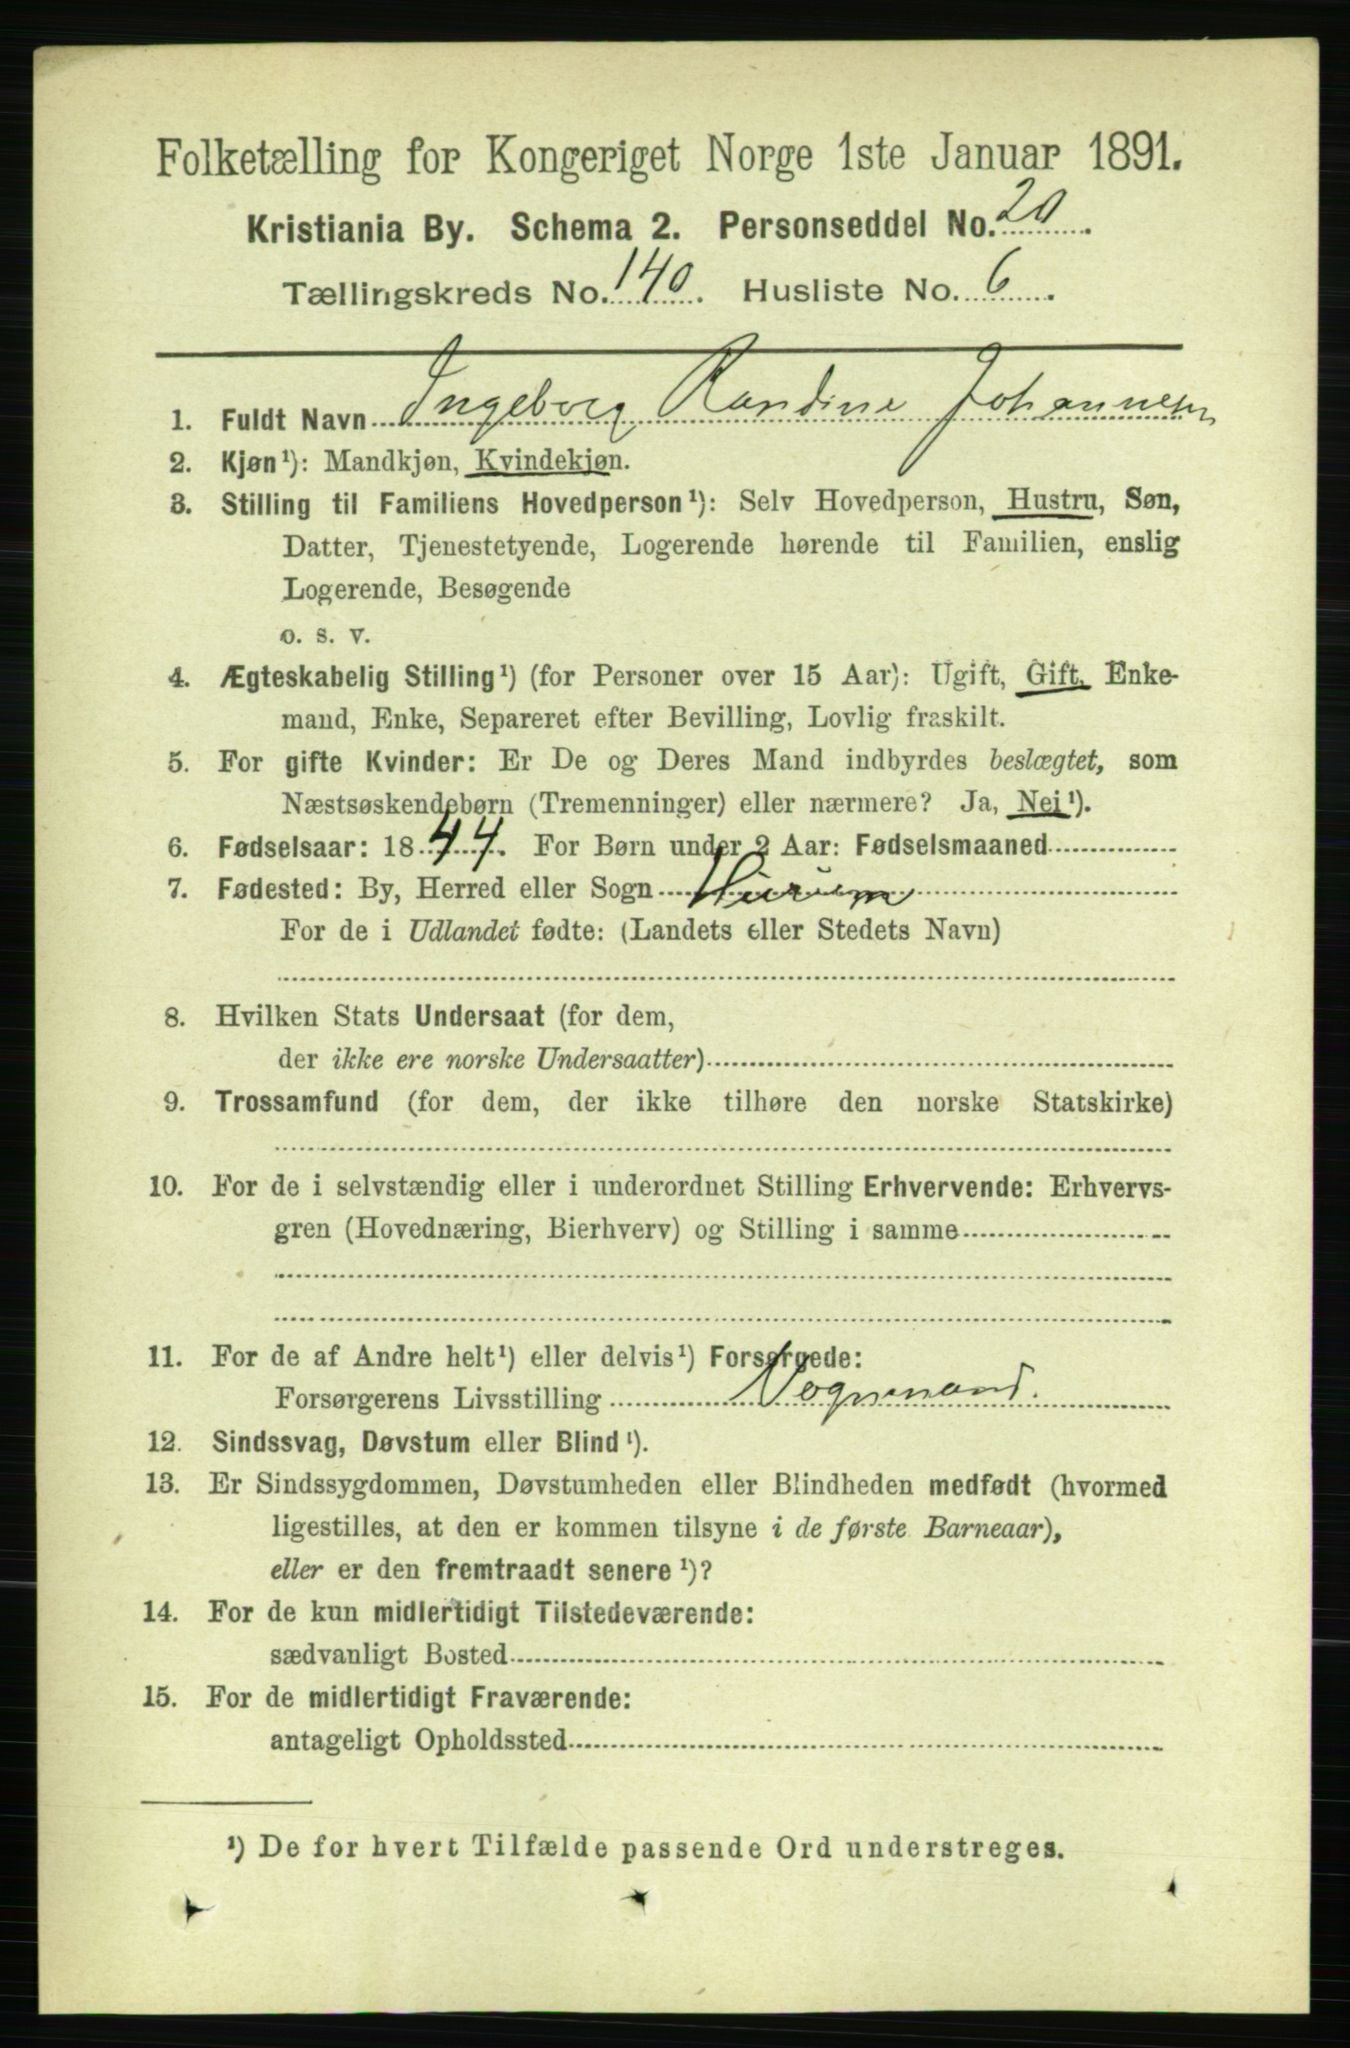 Folketælling for Kongeriget Norge 1ste Januar 1891.
Kristiania By. Schema 2. Personseddel No. 20.
Tællingskreds No. 140. Husliste No. 6.
1. Fuldt Navn Ingeborg Randine Johannesen
2. Kjøn¹): Mandkjøn, Kvindekjøn.
3. Stilling til Familiens Hovedperson¹): Selv Hovedperson, Hustru, Søn,
Datter, Tjenestetyende, Logerende hørende til Familien, enslig
Logerende, Besøgende
o. s. v.
4. Ægteskabelig Stilling¹) (for Personer over 15 Aar): Ugift, Gift, Enke-
mand, Enke, Separeret efter Bevilling, Lovlig fraskilt.
5. For gifte Kvinder: Er De og Deres Mand indbyrdes beslægtet, som
Næstsøskendebørn (Tremenninger) eller nærmere? Ja, Nei¹).
6. Fødselsaar: 1844. For Børn under 2 Aar: Fødselsmaaned
7. Fødested: By, Herred eller Sogn
For de i Udlandet fødte: (Landets eller Stedets Navn)
8. Hvilken Stats Undersaat (for dem,
der ikke ere norske Undersaatter)
9. Trossamfund (for dem, der ikke tilhøre den norske Statskirke)
10. For de i selvstændig eller i underordnet Stilling Erhvervende: Erhvervs-
gren (Hovednæring, Bierhverv) og Stilling i samme
11. For de af Andre helt¹) eller delvis¹) Forsørgede:
Forsørgerens Livsstilling Vognmand.
12. Sindssvag, Døvstum eller Blind¹).
13. Er Sindssygdommen, Døvstumheden eller Blindheden medfødt (hvormed
ligestilles, at den er kommen tilsyne i de første Barneaar),
eller er den fremtraadt senere¹)?
14. For de kun midlertidigt Tilstedeværende:
sædvanligt Bosted
15. For de midlertidigt Fraværende:
antageligt Opholdssted
¹) De for hvert Tilfælde passende Ord understreges.